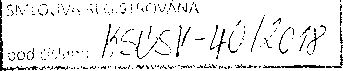 SMLOUVA REGISTROVÁNA
pod číslem: KSÚSV-40/2018